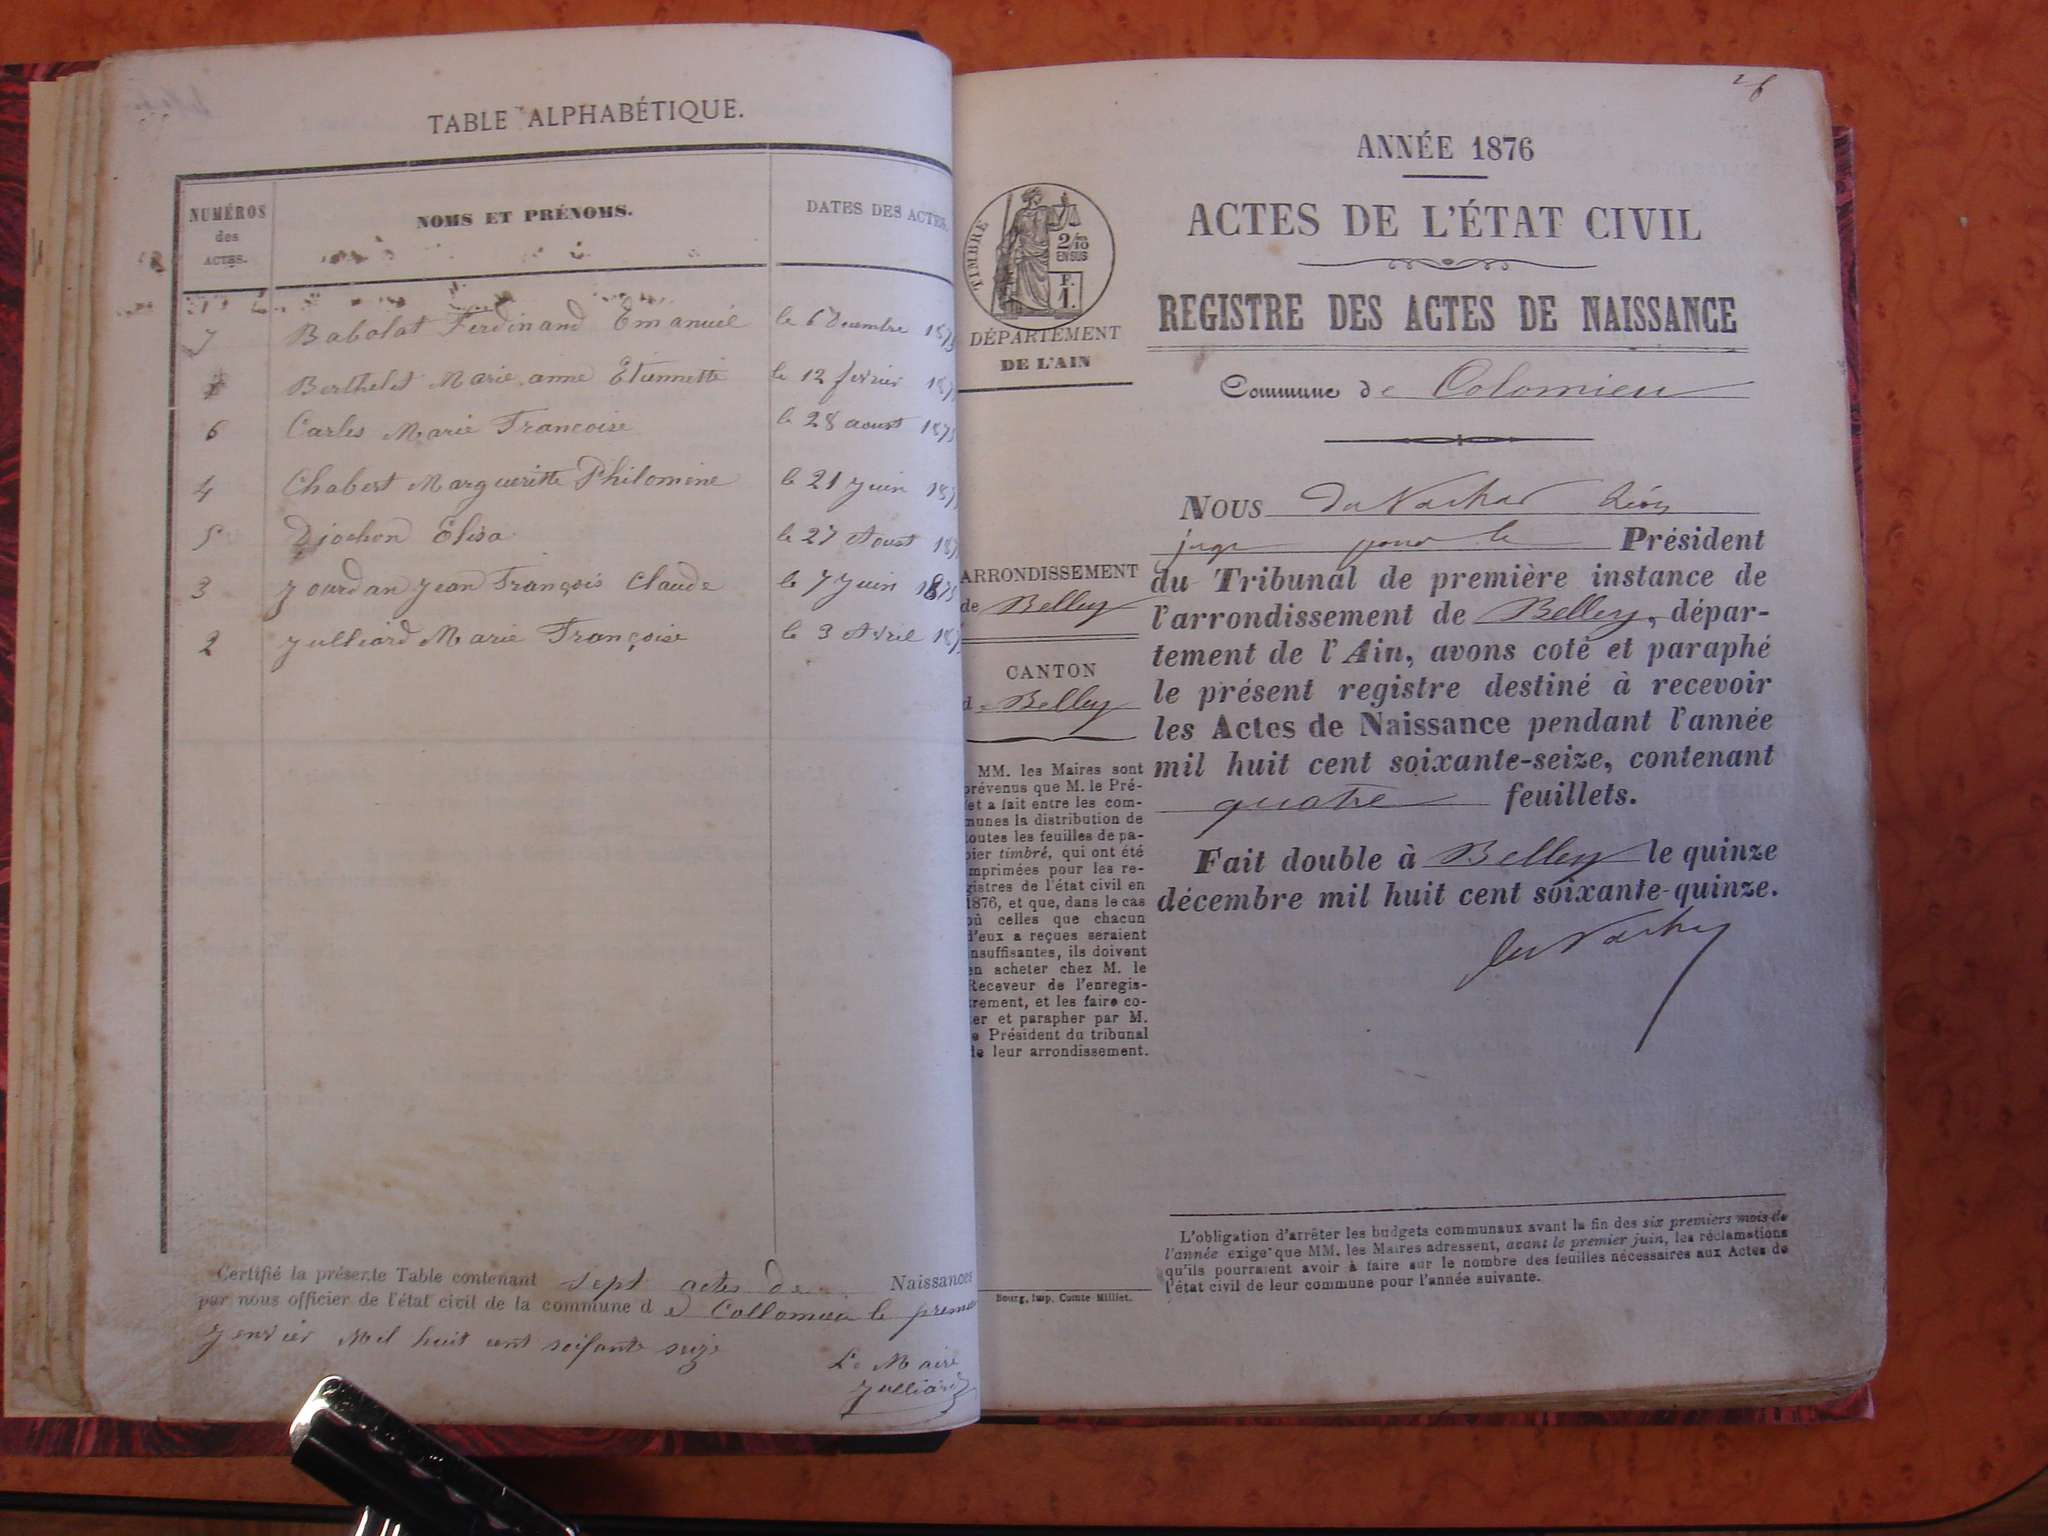 TABLE ALPHABÉTIQUE.
NUMÉROS des ACTES.
NOMS ET PRÉNOMS.
DATES DES ACTES.
7 Babolat Ferdinand Emanuel le 6 Decembre 1875
Berthelet Marie anne Etiennette le 12 fevrier 187
6 Carles Marie Francoise le 28 aoust 1875
4 Chabert Margueritte Philomene le 21 Juin 187
5 Djochon Elisa le 27 Aoust 187
3 Jourdan Jean François Claude le 7 Juin 1875
2 Julliard Marie Françoise le 3 Avril 187
Certifié la présente Table contenant sept actes de Naissances
par nous officier de l'état civil de la commune d e Collomieu le premier
Jenvier Mil huit cent soifante seize
Le Maire
Julliard
ANNÉE 1876
ACTES DE L'ÉTAT CIVIL
REGISTRE DES ACTES DE NAISSANCE
Commune de Colomieu
TIMBRE
2/10
EN SUS
F.
1.
DÉPARTEMENT
DE L'AIN
ARRONDISSEMENT
de Belley
CANTON
de Belley
MM. les Maires sont
prévenus que M. le Pré-
fet a fait entre les com-
munes la distribution de
toutes les feuilles de pa-
pier timbré, qui ont été
imprimées pour les re-
gistres de l'état civil en
1876, et que, dans le cas
où celles que chacun
d'eux a reçues seraient
insuffisantes, ils doivent
en acheter chez M. le
Receveur de l'enregis-
trement, et les faire co-
ter et parapher par M.
le Président du tribunal
de leur arrondissement.
NOUS
juge pour le Président
du Tribunal de première instance de
l'arrondissement de Belley, dépar-
tement de l'Ain, avons coté et paraphé
le présent registre destiné à recevoir
les Actes de Naissance pendant l'année
mil huit cent soixante-seize, contenant
quatre feuillets.
Fait double à Belley le quinze
décembre mil huit cent soixante-quinze.
L'obligation d'arrêter les budgets communaux avant la fin des six premiers mois de
l'année exige que MM. les Maires adressent, avant le premier juin, les réclamations
qu'ils pourraient avoir à faire sur le nombre des feuilles nécessaires aux Actes de
l'état civil de leur commune pour l'année suivante.
Bourg, Imp. Comte-Milliet.